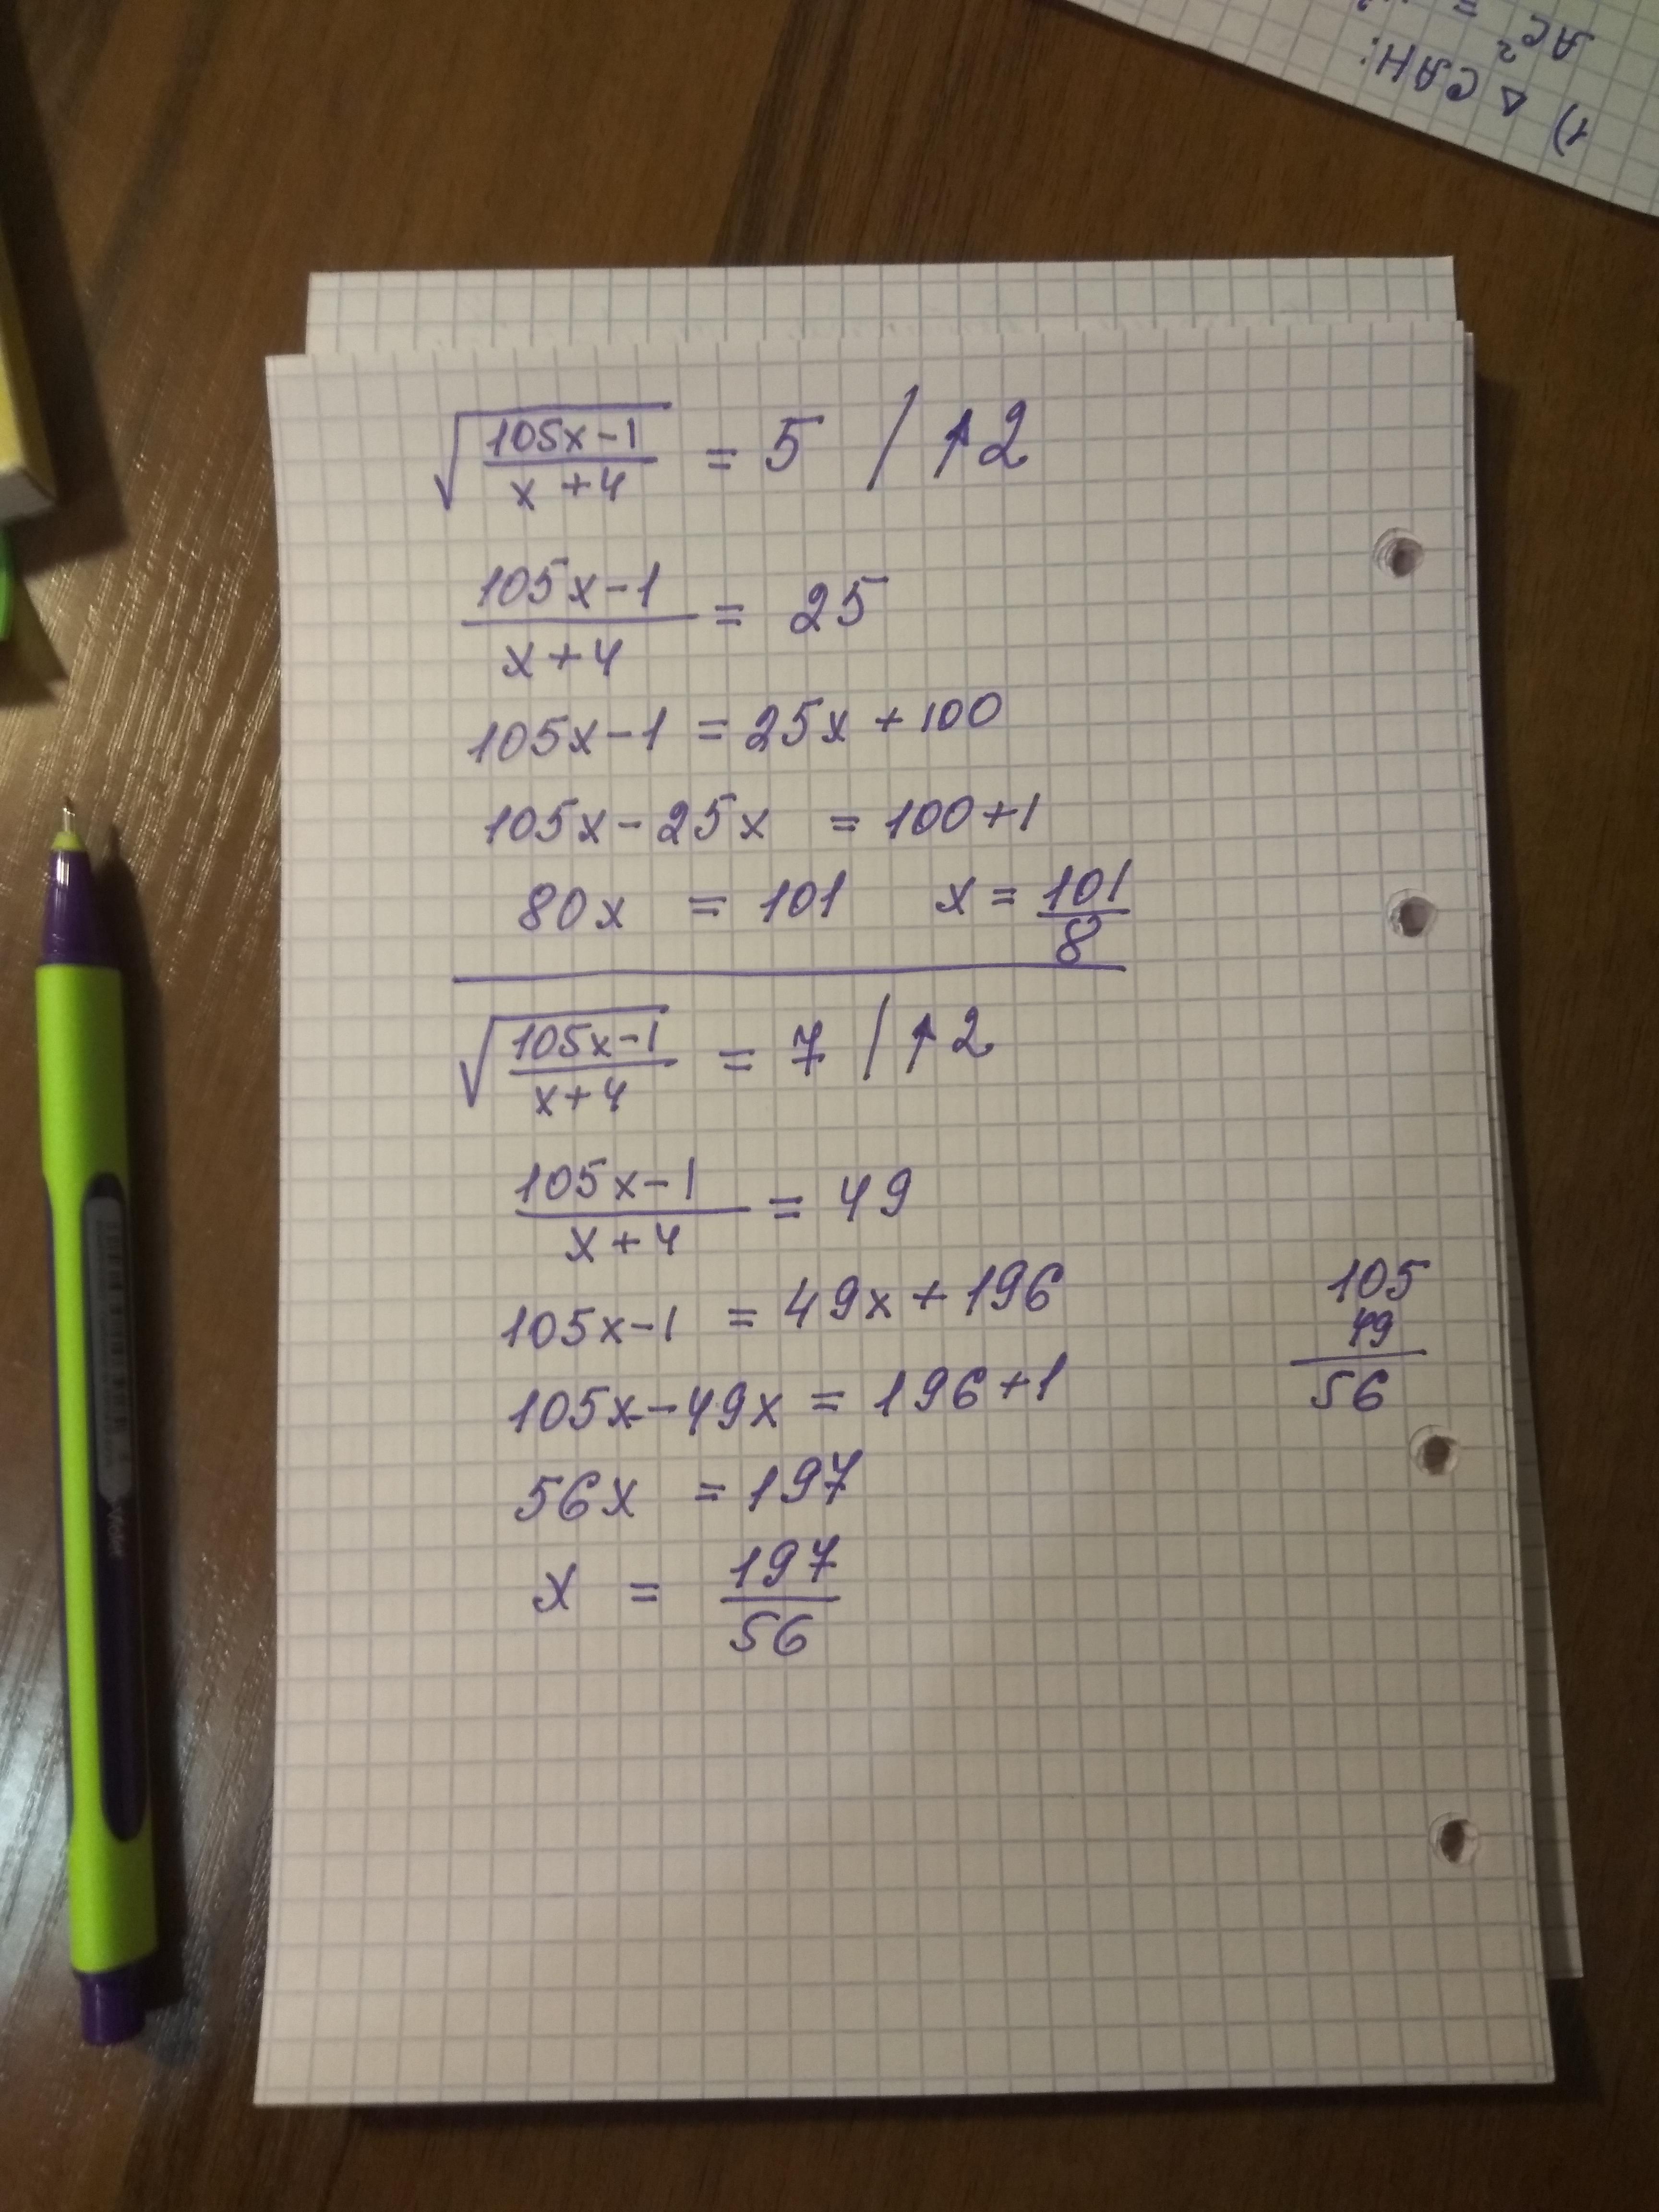 1) △ CAH:
AC² =
√((105x-1)/(x+4)) = 5 / ↑2
(105x-1)/(x+4) = 25
105x-1 = 25x+100
105x-25x = 100+1
80x = 101 x = 101/8
√((105x-1)/(x+4)) = 7 / ↑2
(105x-1)/(x+4) = 49
105x-1 = 49x+196
105x-49x = 196+1
56x = 197
x = 197/56
105
49
56